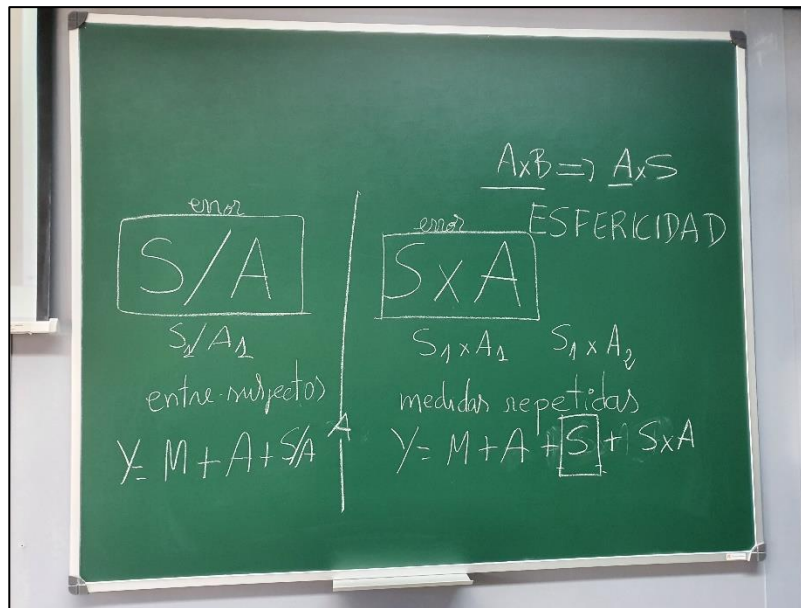 error
S/A
S1/A1
entre-sujetos
Y= M + A + S/A
A
AxB => AxS
ESFERICIDAD
error
SxA
S1xA1 S1xA2
medidas repetidas
Y= M + A + S + SxA